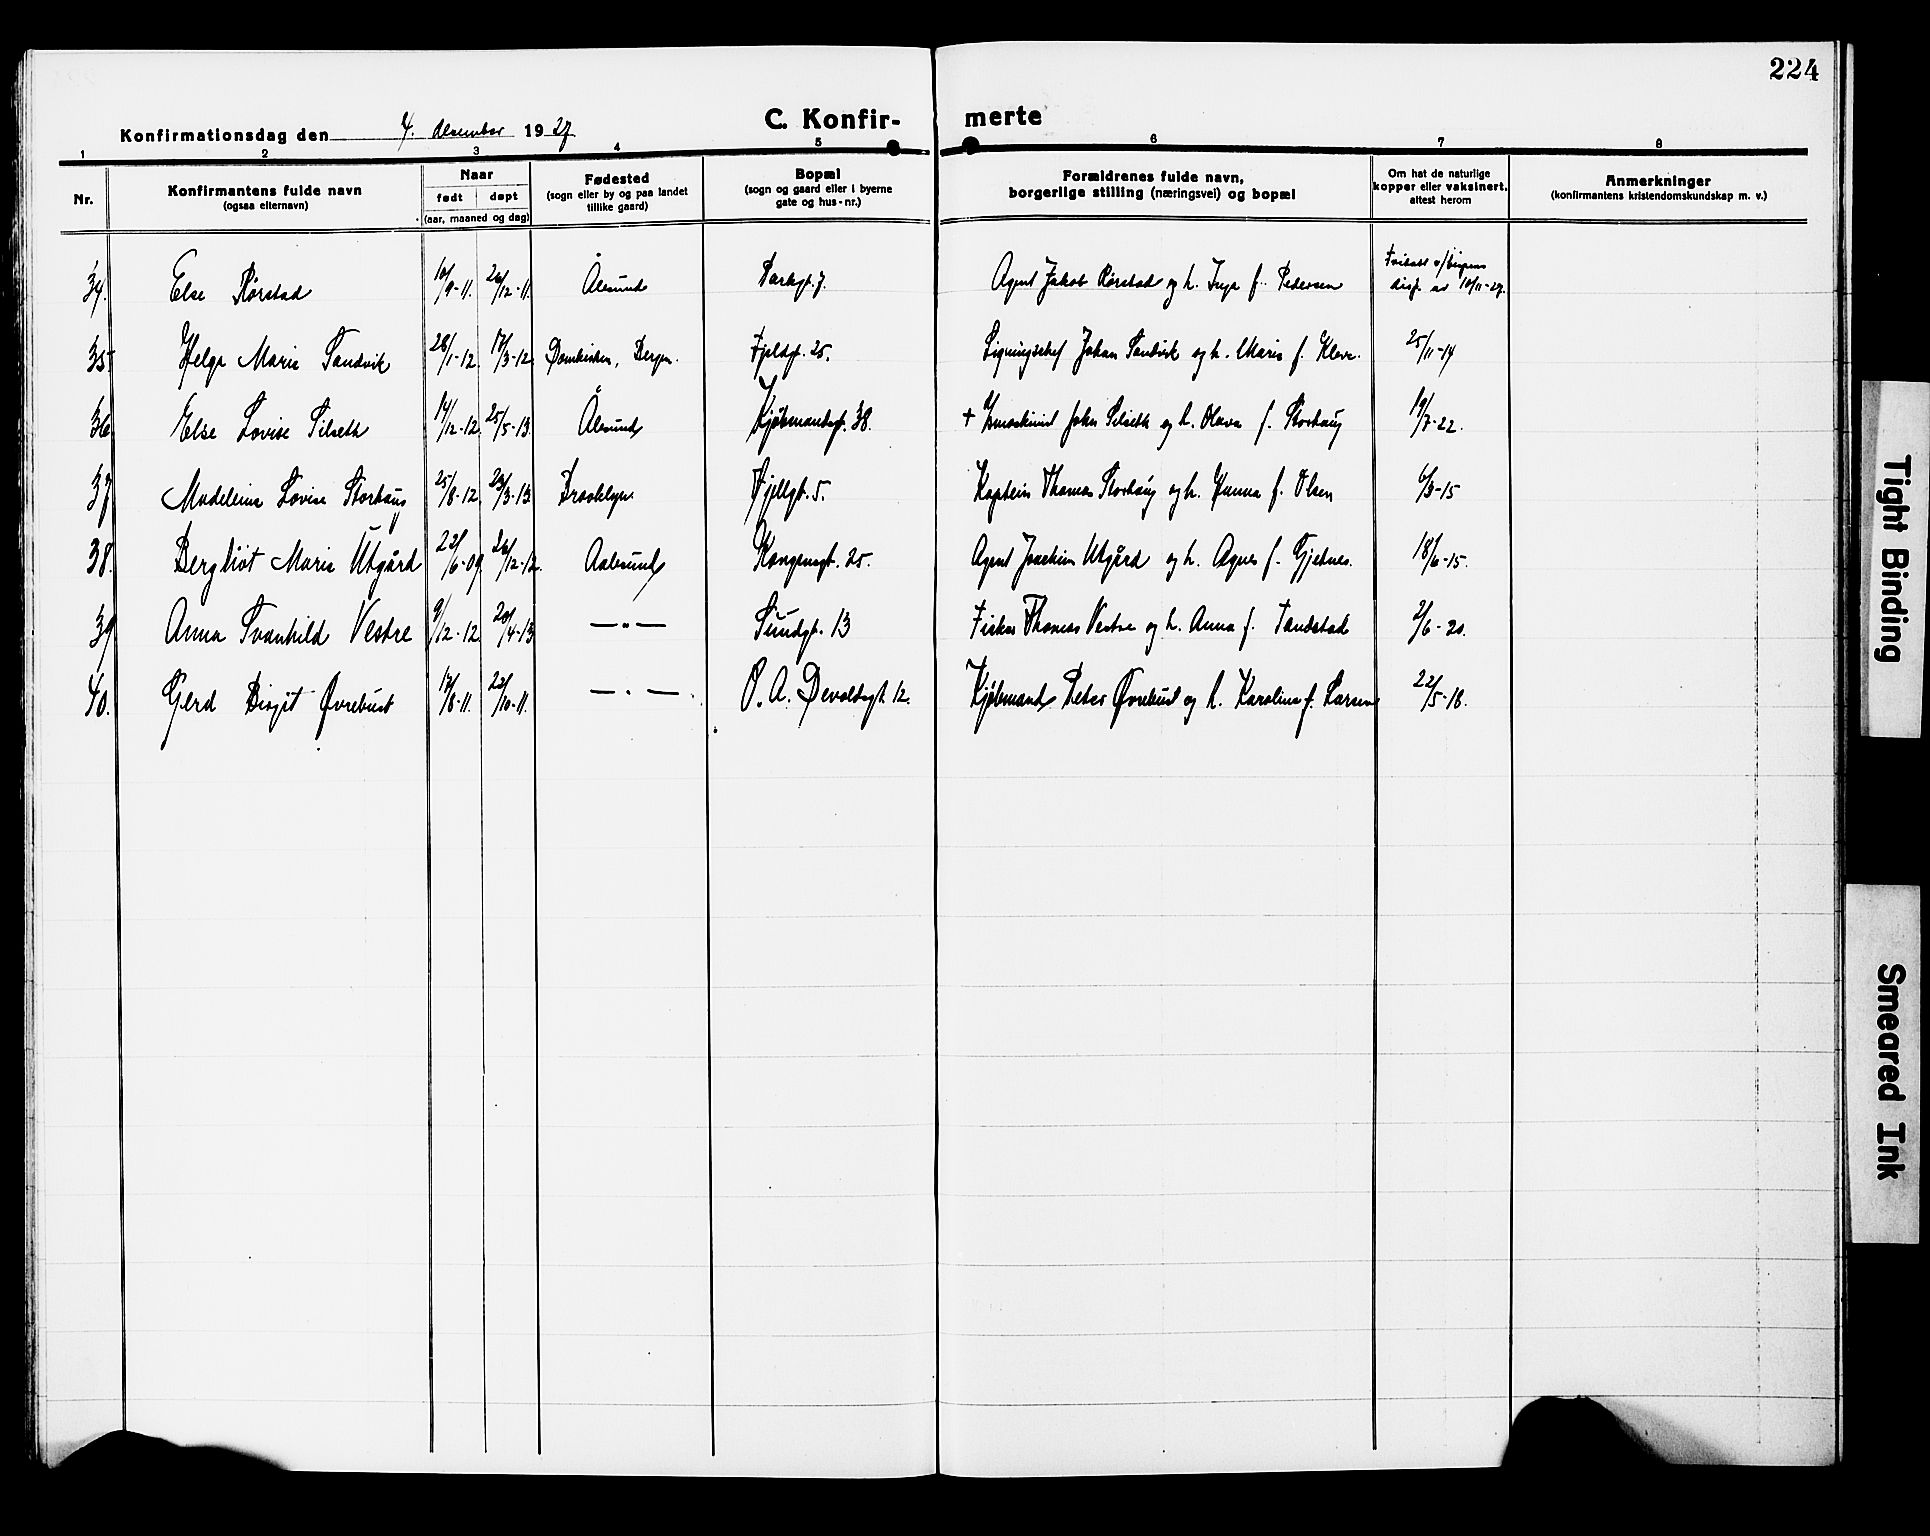 224
Konfirmationsdag den 4. desember 1927 C. Konfir- merte
1 2 3 4 5 6 7 8
Nr.
Konfirmantens fulde navn
(ogsaa efternavn)
Naar
født døpt
(aar, maaned og dag)
Fødested
(sogn eller by og paa landet
tillike gaard)
Bopæl
(sogn og gaard eller i byerne
gate og hus-nr.)
Forældrenes fulde navn,
borgerlige stilling (næringsvei) og bopæl
Om hat de naturlige
kopper eller vaksinert,
attest herom
Anmerkninger
(konfirmantens kristendomskundskap m. v.)
34. Else Rørstad 10/9-11. 26/12-11. Ålesund Parkgt. 7. Agent Jakob Rørstad og h. Inga f. Pedersen Fritatt disp. av 10/11-27.
35 Helga Marie Sandvik 28/1-12. 17/3-12. Domkirken, Bergen. Fjeldgt. 25. Ligningschef Johan Sandvik og h. Marie f. Kleve. 25/11-14
36 Else Lovise Silseth 14/12-12. 25/5-13. Ålesund Kjøbmandsgt. 38. + Johan Silseth og h. Olava f. Storhaug 19/7-22.
37 Madeleine Lovise Storhaug 25/8-12. 23/3-13. Brooklyn. Fjellgt. 5. Kaptein Thomas Storhaug og h. Gunna f. Olsen 6/3-15
38. Bergliot Marie Utgård 22/6-09. 26/12-12. Aalesund Kongensgt. 25. Agent Joachim Utgård og h. Agnes f. Gjetnes. 18/6-15.
39 Anna Svanhild Vestre 9/12-12. 20/4-13 —"— Sundgt. 13 Fisker Thomas Vestre og h. Anna f. Tandstad 2/6-20.
40. Gerd Birgit Øvrebust 17/8-11. 22/10-11. —"— O. A. Devoldsgt. 12. Kjøbmand Peter Øvrebust og h. Karoline f. Larsen 22/5-18.
Tight Binding
Smeared Ink